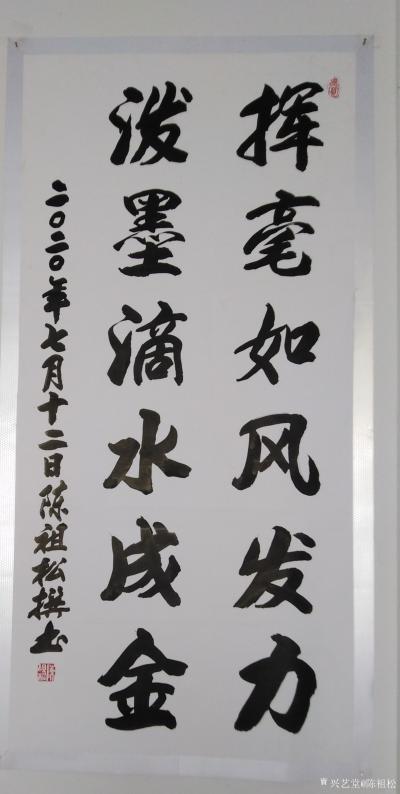 挥毫如风发力
泼墨滴水成金
二〇二〇年七月十二日陈祖松撰书
兴艺堂@陈祖松